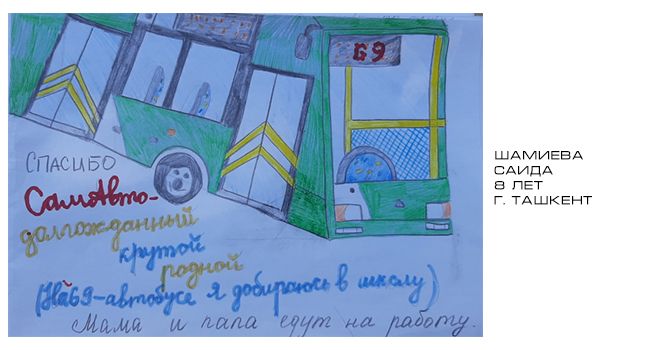 69
СПАСИБО
СамАвто-
долгожданный
крутой
родной
(На 69-автобусе я добираюсь в школу)
Мама и папа едут на работу.
ШАМИЕВА
САИДА
8 ЛЕТ
Г. ТАШКЕНТ